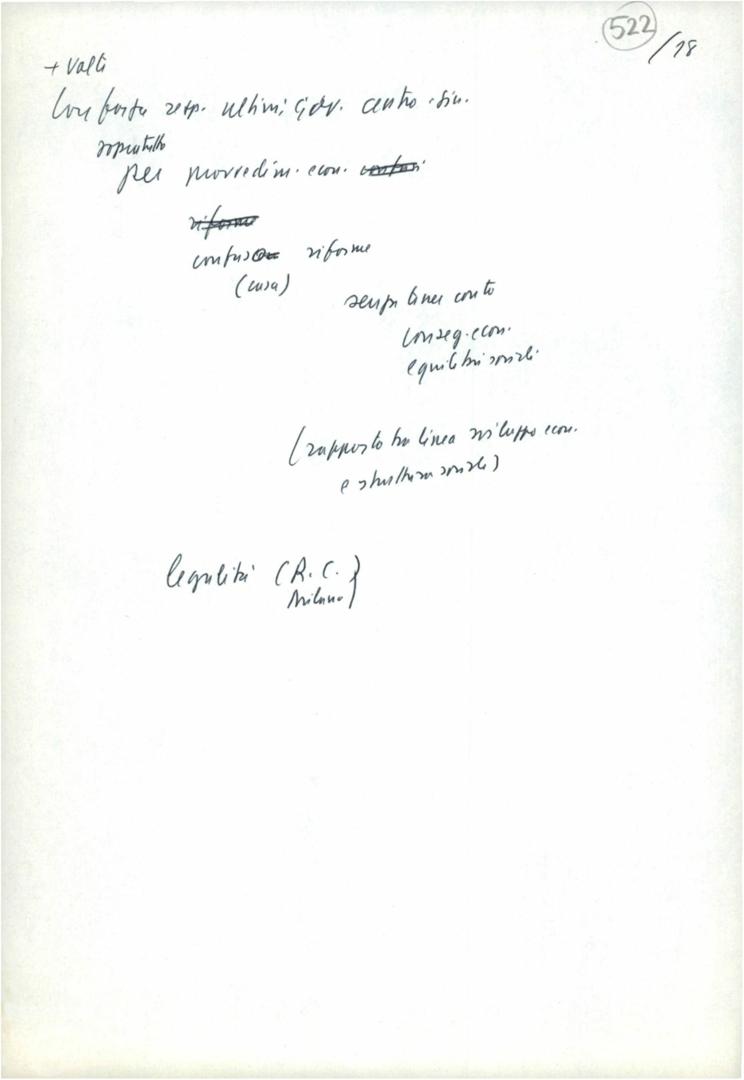 522
/18
+ volte
Con forza resp. ultimi gov. centro-sin.
soprattutto
per provvedim. econ. confusi
riforme
confuse riforme
(casa)
senza tener conto
conseg. econ.
equilibri sociali
(rapporto tra linea sviluppo econ.
e struttura sociale)
legalità (R.C.
Milano)